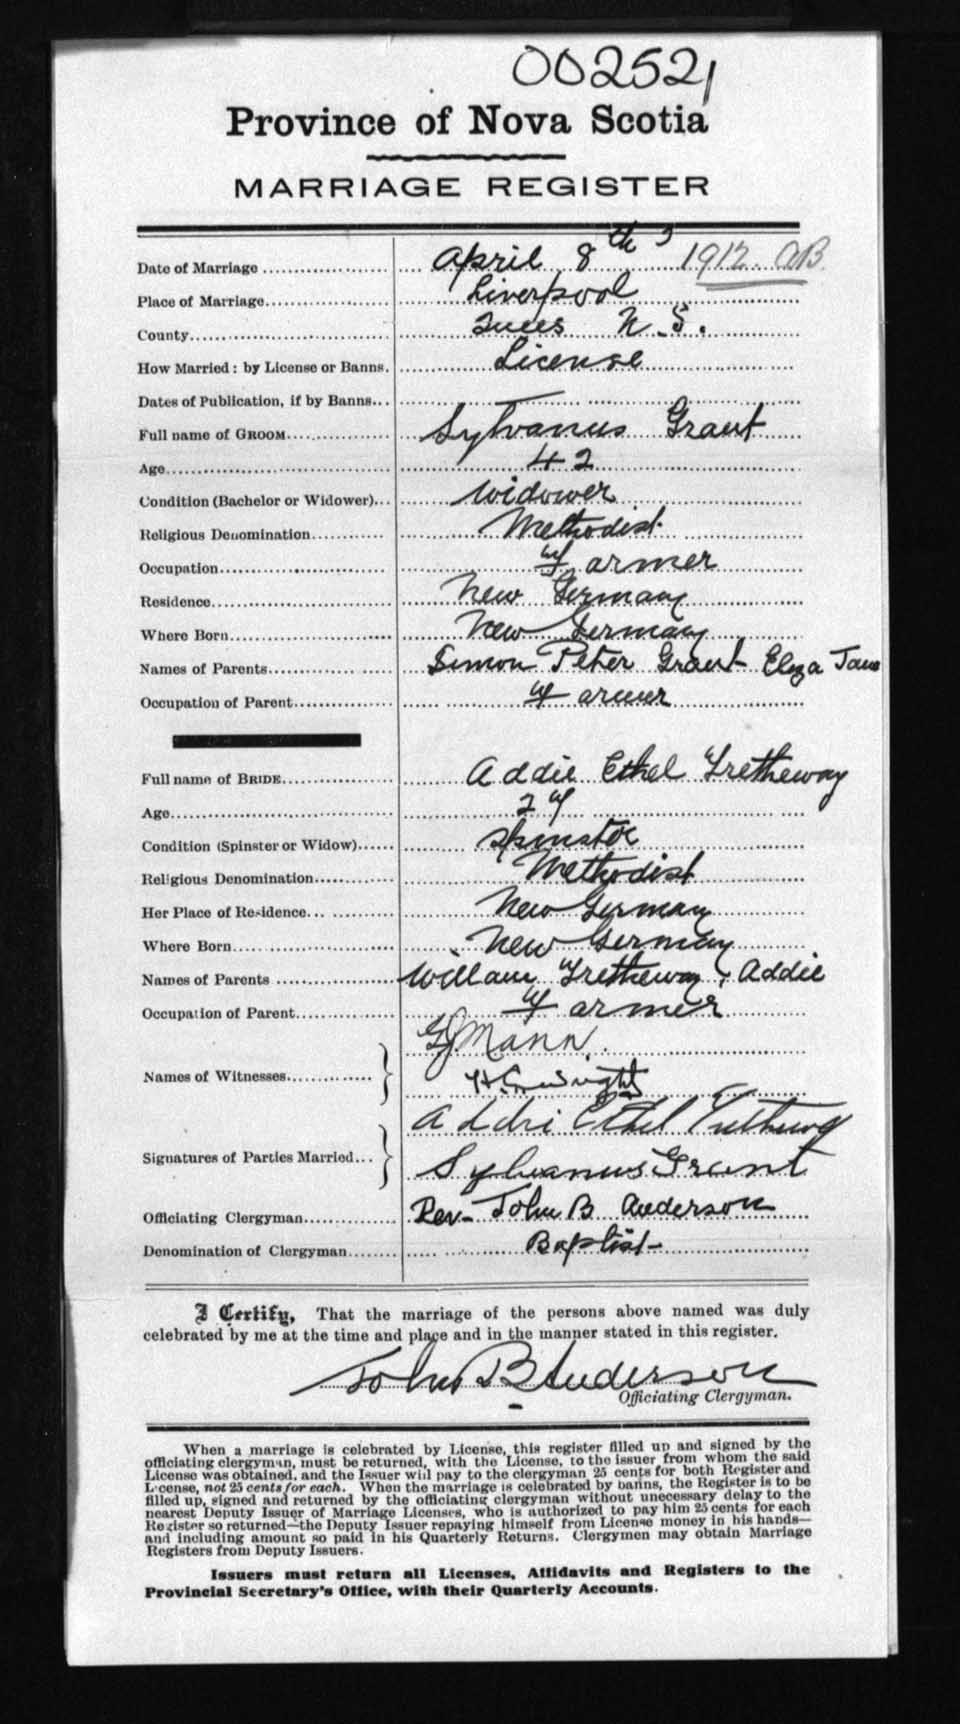 002521
Province of Nova Scotia
MARRIAGE REGISTER
Date of Marriage April 8th 1912. AB
Place of Marriage Liverpool
County N. S.
How Married: by License or Banns. License
Dates of Publication, if by Banns
Full name of GROOM Sylvanus Grant
Age 42
Condition (Bachelor or Widower) Widower
Religious Denomination Methodist
Occupation Farmer
Residence New Germany
Where Born New Germany
Names of Parents Simon Peter Grant Eliza Jane
Occupation of Parent Farmer
Full name of BRIDE Addie Ethel Tretheway
Age
Condition (Spinster or Widow) Spinster
Religious Denomination Methodist
Her Place of Residence New Germany
Where Born New Germany
Names of Parents William Tretheway & Addie
Occupation of Parent Farmer
Names of Witnesses Mann
Wright
Signatures of Parties Married Ethel
Sylvanus Grant
Officiating Clergyman Rev- John B Anderson
Denomination of Clergyman Baptist
I Certify, That the marriage of the persons above named was duly
celebrated by me at the time and place and in the manner stated in this register.
John B Anderson
Officiating Clergyman.
When a marriage is celebrated by License, this register filled up and signed by the
officiating clergyman, must be returned, with the License, to the issuer from whom the said
License was obtained, and the Issuer will pay to the clergyman 25 cents for both Register and
License, not 25 cents for each. When the marriage is celebrated by banns, the Register is to be
filled up, signed and returned by the officiating clergyman without unecessary delay to the
nearest Deputy Issuer of Marriage Licenses, who is authorized to pay him 25 cents for each
Register so returned—the Deputy Issuer repaying himself from License money in his hands—
and including amount so paid in his Quarterly Returns. Clergymen may obtain Marriage
Registers from Deputy Issuers.
Issuers must return all Licenses, Affidavits and Registers to the
Provincial Secretary's Office, with their Quarterly Accounts.